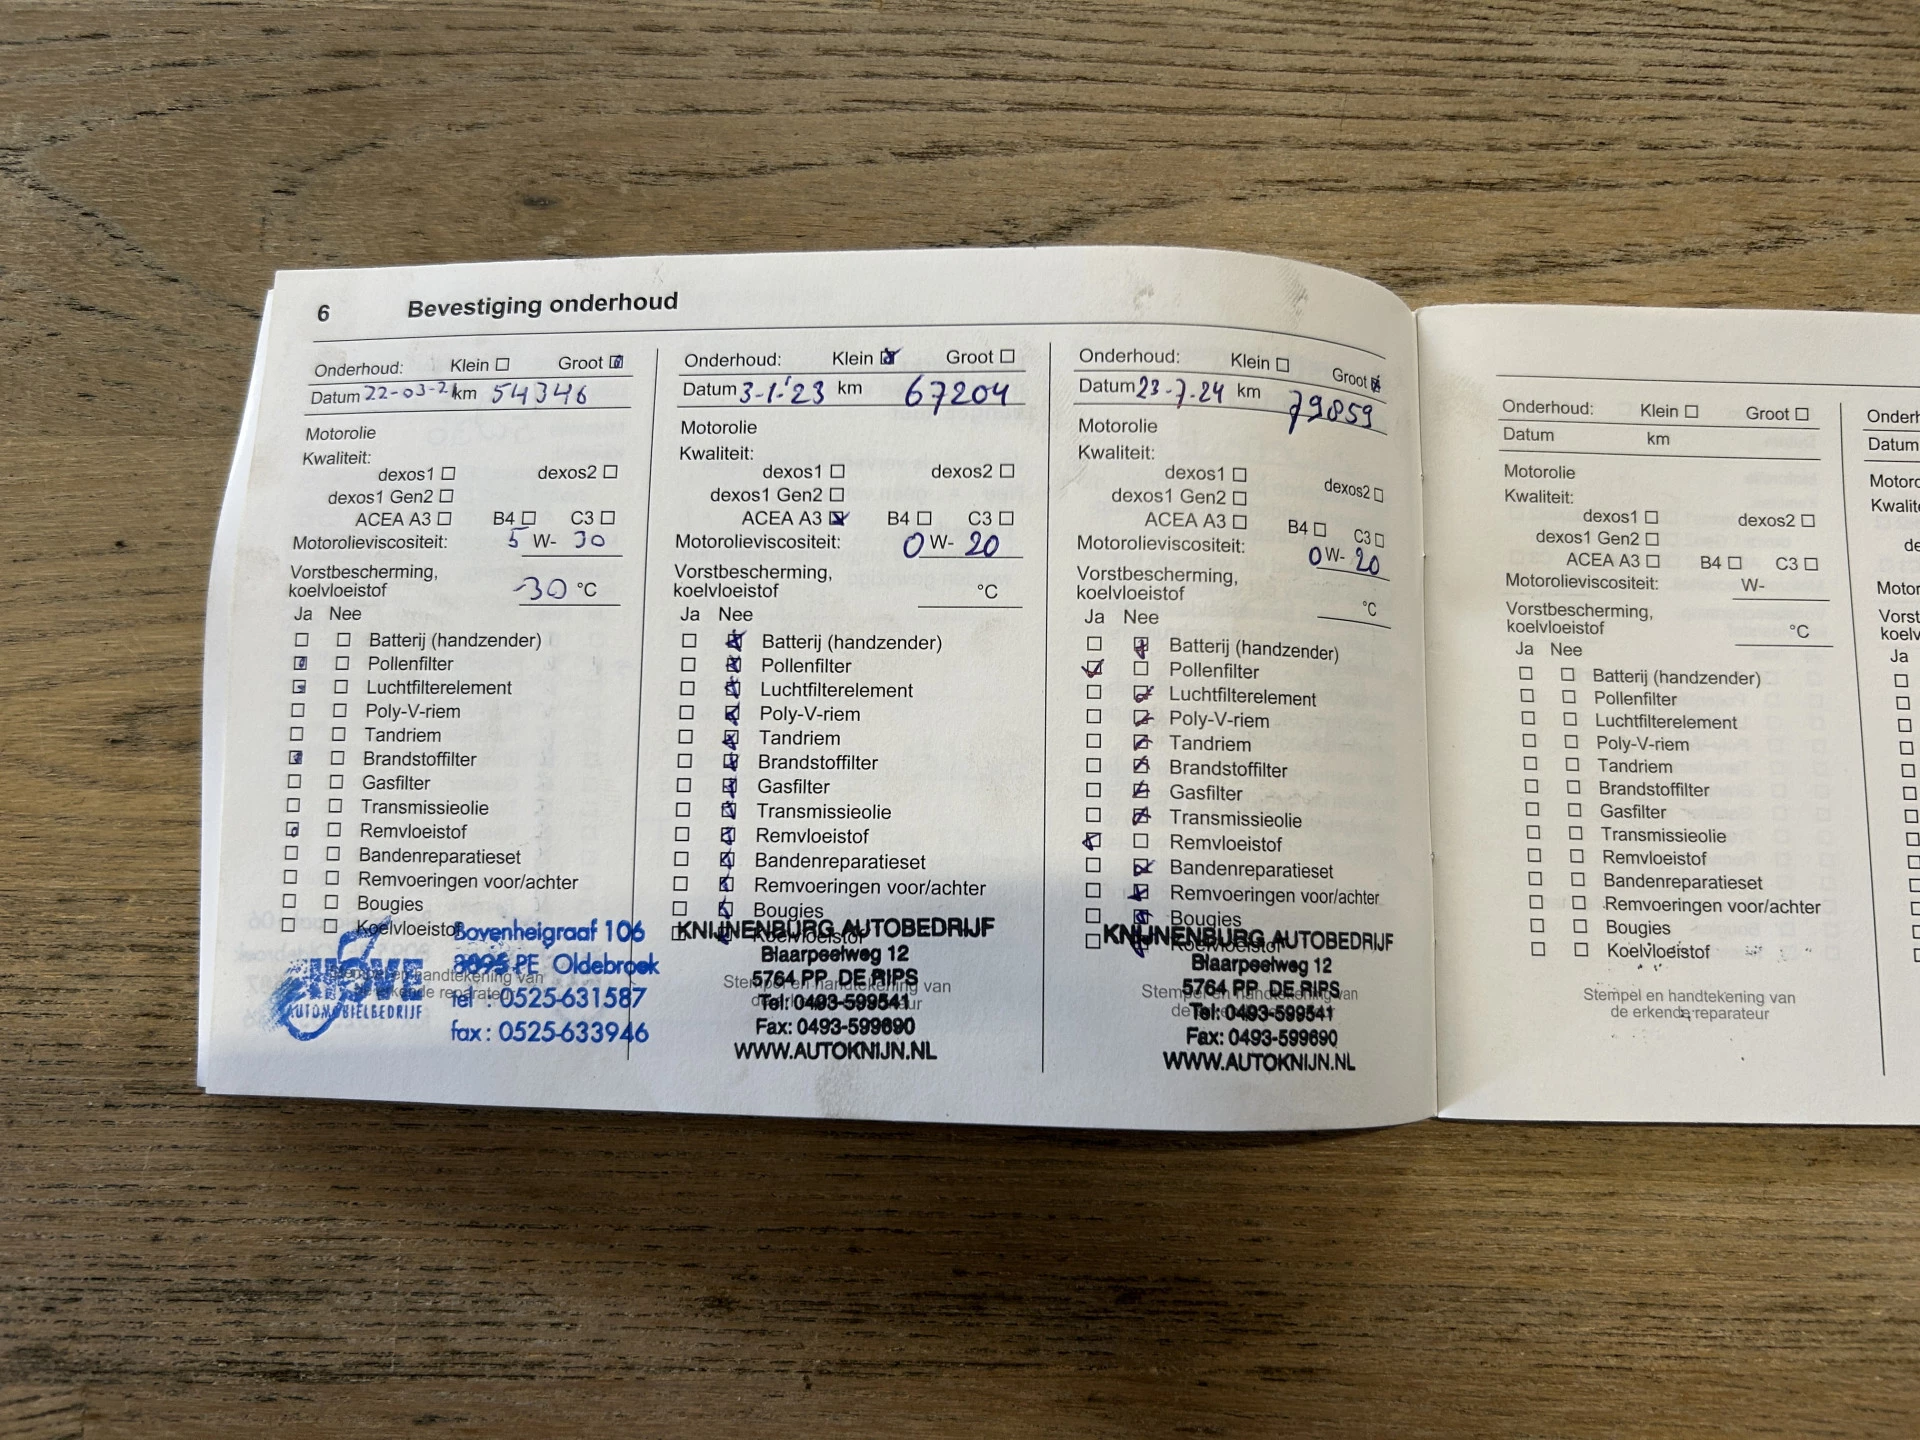 6 Bevestiging onderhoud
Onderhoud: Klein ☐ Groot ☒
Datum 22-03-21 km 54346
Motorolie
Kwaliteit:
dexos1 ☐ dexos2 ☐
dexos1 Gen2 ☐
ACEA A3 ☐ B4 ☐ C3 ☐
Motorolieviscositeit: 5 W- 30
Vorstbescherming,
koelvloeistof -30 °C
Ja Nee
☐ ☐ Batterij (handzender)
☒ ☐ Pollenfilter
☒ ☐ Luchtfilterelement
☐ ☐ Poly-V-riem
☐ ☐ Tandriem
☒ ☐ Brandstoffilter
☐ ☐ Gasfilter
☐ ☐ Transmissieolie
☒ ☐ Remvloeistof
☐ ☐ Bandenreparatieset
☐ ☐ Remvoeringen voor/achter
☐ ☐ Bougies
☐ ☐ Koelvloeistof
HOVE
AUTOMOBIELBEDRIJF
Bovenheigraaf 106
8095 PE Oldebroek
tel : 0525-631587
fax : 0525-633946
Onderhoud: Klein ☒ Groot ☐
Datum 3-1-'23 km 67204
Motorolie
Kwaliteit:
dexos1 ☐ dexos2 ☐
dexos1 Gen2 ☐
ACEA A3 ☒ B4 ☐ C3 ☐
Motorolieviscositeit: 0 W- 20
Vorstbescherming,
koelvloeistof °C
Ja Nee
☐ ☒ Batterij (handzender)
☐ ☒ Pollenfilter
☐ ☒ Luchtfilterelement
☐ ☒ Poly-V-riem
☐ ☒ Tandriem
☐ ☒ Brandstoffilter
☐ ☒ Gasfilter
☐ ☒ Transmissieolie
☐ ☒ Remvloeistof
☐ ☒ Bandenreparatieset
☐ ☒ Remvoeringen voor/achter
☐ ☒ Bougies
☐ ☒ Koelvloeistof
KNIJNENBURG AUTOBEDRIJF
Blaarpeelweg 12
5764 PP DE RIPS
Stempel en handtekening van
Tel: 0493-599541
Fax: 0493-599690
WWW.AUTOKNIJN.NL
Onderhoud: Klein ☐ Groot ☒
Datum 23-7-24 km 79859
Motorolie
Kwaliteit:
dexos1 ☐ dexos2 ☐
dexos1 Gen2 ☐
ACEA A3 ☐ B4 ☐ C3 ☐
Motorolieviscositeit: 0 W- 20
Vorstbescherming,
koelvloeistof °C
Ja Nee
☐ ☒ Batterij (handzender)
☒ ☐ Pollenfilter
☐ ☒ Luchtfilterelement
☐ ☒ Poly-V-riem
☐ ☒ Tandriem
☐ ☒ Brandstoffilter
☐ ☒ Gasfilter
☐ ☒ Transmissieolie
☒ ☐ Remvloeistof
☐ ☒ Bandenreparatieset
☐ ☒ Remvoeringen voor/achter
☐ ☒ Bougies
☐ ☒ Koelvloeistof
KNIJNENBURG AUTOBEDRIJF
Blaarpeelweg 12
5764 PP DE RIPS
Stempel en handtekening van
Tel: 0493-599541
Fax: 0493-599690
WWW.AUTOKNIJN.NL
Onderhoud: Klein ☐ Groot ☐
Datum km
Motorolie
Kwaliteit:
dexos1 ☐ dexos2 ☐
dexos1 Gen2 ☐
ACEA A3 ☐ B4 ☐ C3 ☐
Motorolieviscositeit: W-
Vorstbescherming,
koelvloeistof °C
Ja Nee
☐ ☐ Batterij (handzender)
☐ ☐ Pollenfilter
☐ ☐ Luchtfilterelement
☐ ☐ Poly-V-riem
☐ ☐ Tandriem
☐ ☐ Brandstoffilter
☐ ☐ Gasfilter
☐ ☐ Transmissieolie
☐ ☐ Remvloeistof
☐ ☐ Bandenreparatieset
☐ ☐ Remvoeringen voor/achter
☐ ☐ Bougies
☐ ☐ Koelvloeistof
Stempel en handtekening van
de erkende reparateur
Onderh
Datum
Motoro
Kwalite
de
Motor
Vorst
koelv
Ja